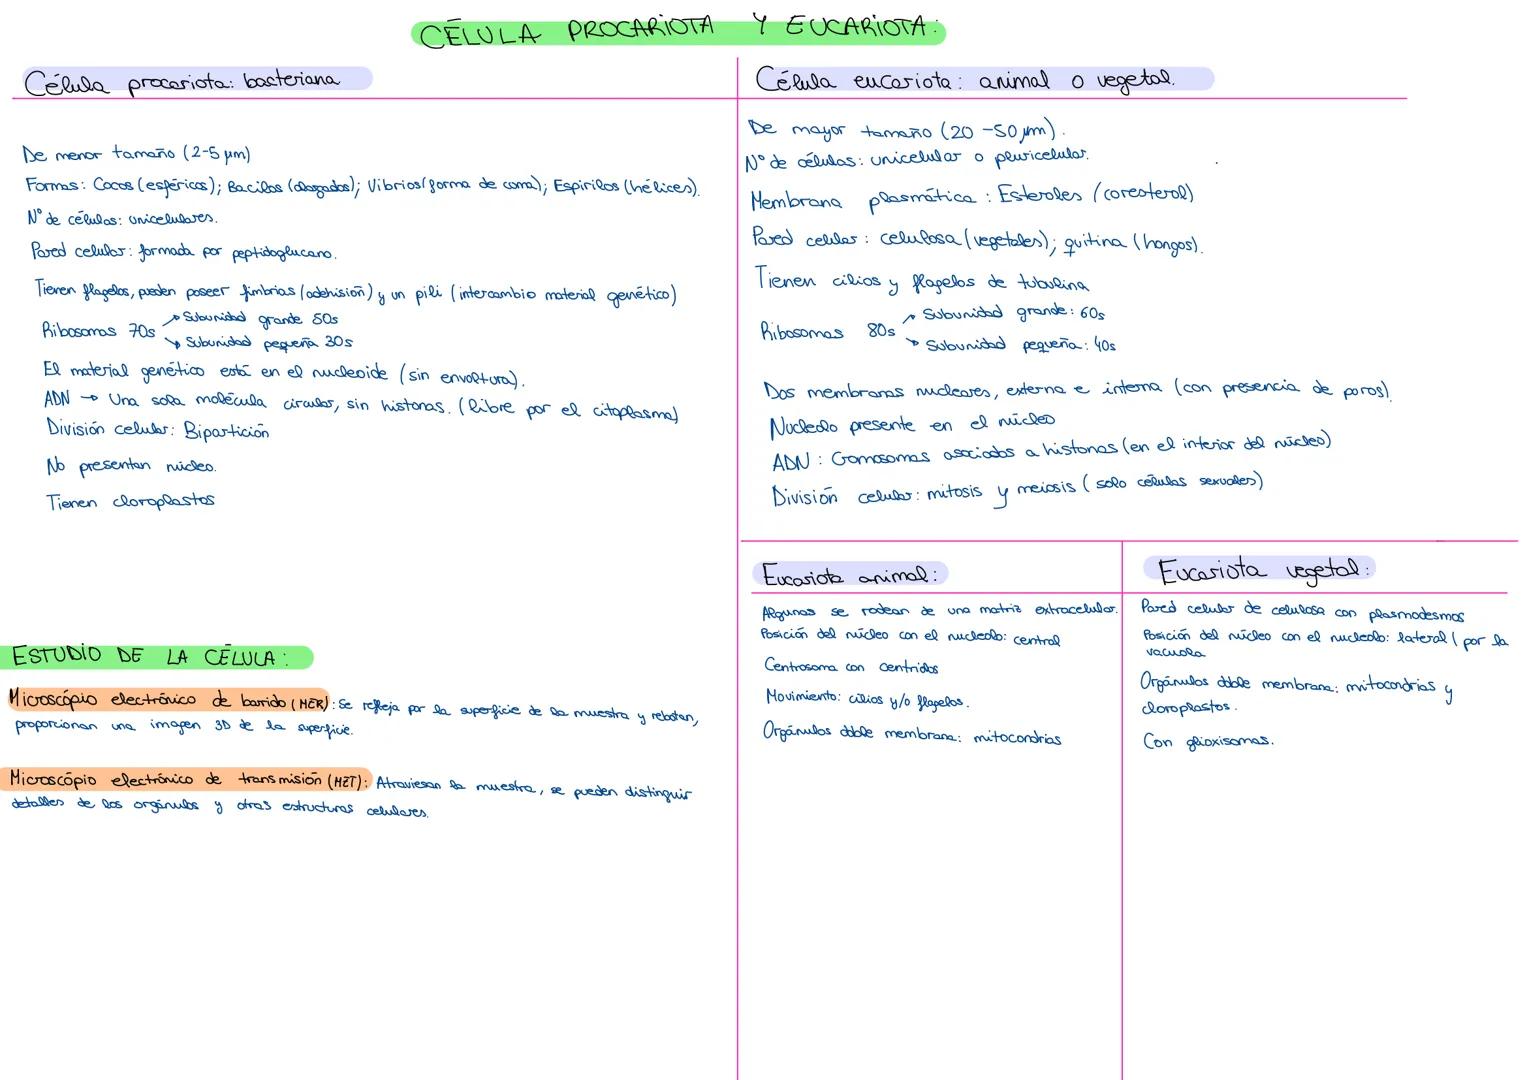 CÉLULA PROCARIOTA Y EUCARIOTA:
Célula procariota: bacteriana
De menor tamaño (2-5 µm)
Formas: Cocos (esféricos); Bacilos (alargados); Vibrios (forma de coma); Espirilos (hélices).
Nº de células: unicelulares.
Pared celular: formada por peptidoglucano.
Tienen flagelos, pueden poseer fimbrias (adehisión) y un pili (intercambio material genético)
Ribosomas 70s
→ Subunidad grande 50s
→ Subunidad pequeña 30s
El material genético está en el nucleoide (sin envoltura).
ADN → Una sola molécula circular, sin histonas. (libre por el citoplasma)
División celular: Bipartición
No presentan núcleo.
Tienen cloroplastos
ESTUDIO DE LA CÉLULA:
Microscópio electrónico de barrido (MER): Se refleja por la superficie de la muestra y rebotan,
proporcionan una imagen 3D de la superficie.
Microscópio electrónico de transmisión (MET): Atraviesan la muestra, se pueden distinguir
detalles de los orgánulos y otras estructuras celulares.
Célula eucariota: animal o vegetal.
De mayor tamaño (20-50 µm).
Nº de células: unicelular o pluricelular.
Membrana plasmática: Esteroles (coresterol)
Pared celular: celulosa (vegetales); quitina (hongos).
Tienen cilios y flagelos de tubulina
Ribosomas 80s
→ Subunidad grande: 60s
→ Subunidad pequeña: 40s
Dos membranas nucleares, externa e interna (con presencia de poros).
Nucleolo presente en el núcleo
ADN: Cromosomas asociados a histonas (en el interior del núcleo)
División celular: mitosis y meiosis (solo células sexuales)
Eucariota animal:
Algunas se rodean de una matriz extracelular.
Posición del núcleo con el nucleolo: central
Centrosoma con centriolos
Movimiento: cilios y/o flagelos.
Orgánulos doble membrana: mitocondrias
Eucariota vegetal:
Pared celular de celulosa con plasmodesmos
Posición del núcleo con el nucleolo: lateral (por la
vacuola
Orgánulos doble membrana: mitocondrias y
cloroplastos.
Con glioxisomas.